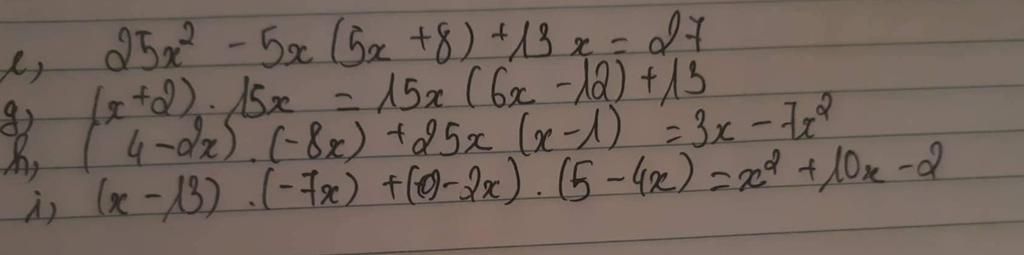 e, 25x² - 5x (5x +8) +13x = 27
g, (x+2) . 15x = 15x (6x -12) +13
h, (4-2x) . (-8x) +25x (x-1) = 3x - 7x²
i, (x -13) . (-7x) +( -2x) . (5 -4x) = x² +10x -2